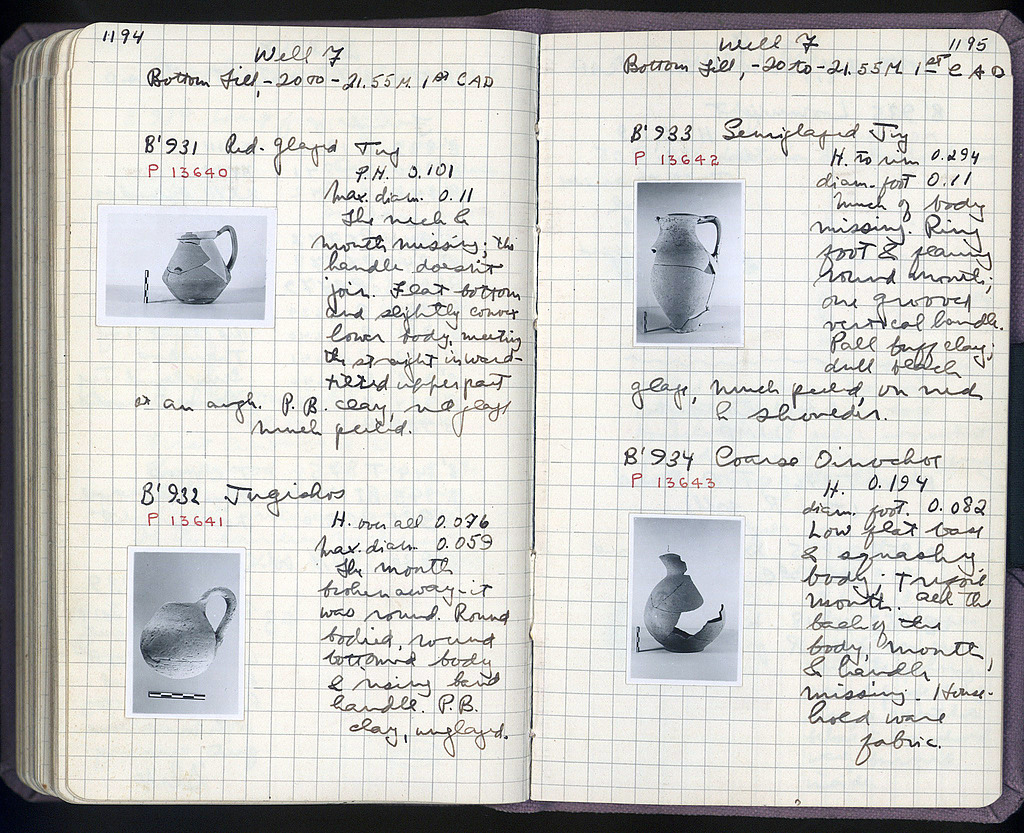 1194
Well 7
Bottom fill, -20 to -21.55M. 1st C AD
B'931 Red-glazed Jug
P 13640
P.H. 0.101
Max. diam. 0.11
The neck &
mouth missing; the
handle doesn't
join. Flat bottom
and slightly convex
lower body, meeting
the straight inward-
tilted upper part
at an angle. P.B. clay, red glaze
much peeled.
B'932 Jugiskos
P 13641
H. over all 0.076
Max. diam. 0.059
The mouth
broken away - it
was round. Round
bodied, round
bottomed body
& rising band
handle. P.B.
clay, unglazed.
1195
Well 7
Bottom fill, -20 to -21.55M. 1ST C AD
B'933 Semiglazed Jug
P 13642
H. to rim 0.294
diam. foot 0.11
Much of body
missing. Ring
foot & flaring
round mouth;
one grooved
vertical handle.
Pale buff clay;
dull black
glaze, much peeled, on neck
& shoulder.
B'934 Coarse Oinochoe
P 13643
H. 0.194
diam. foot. 0.082
Low flat base
& squashy
body; trefoil
mouth. All the
back of the
body, mouth,
& handle
missing. House-
hold ware
fabric.